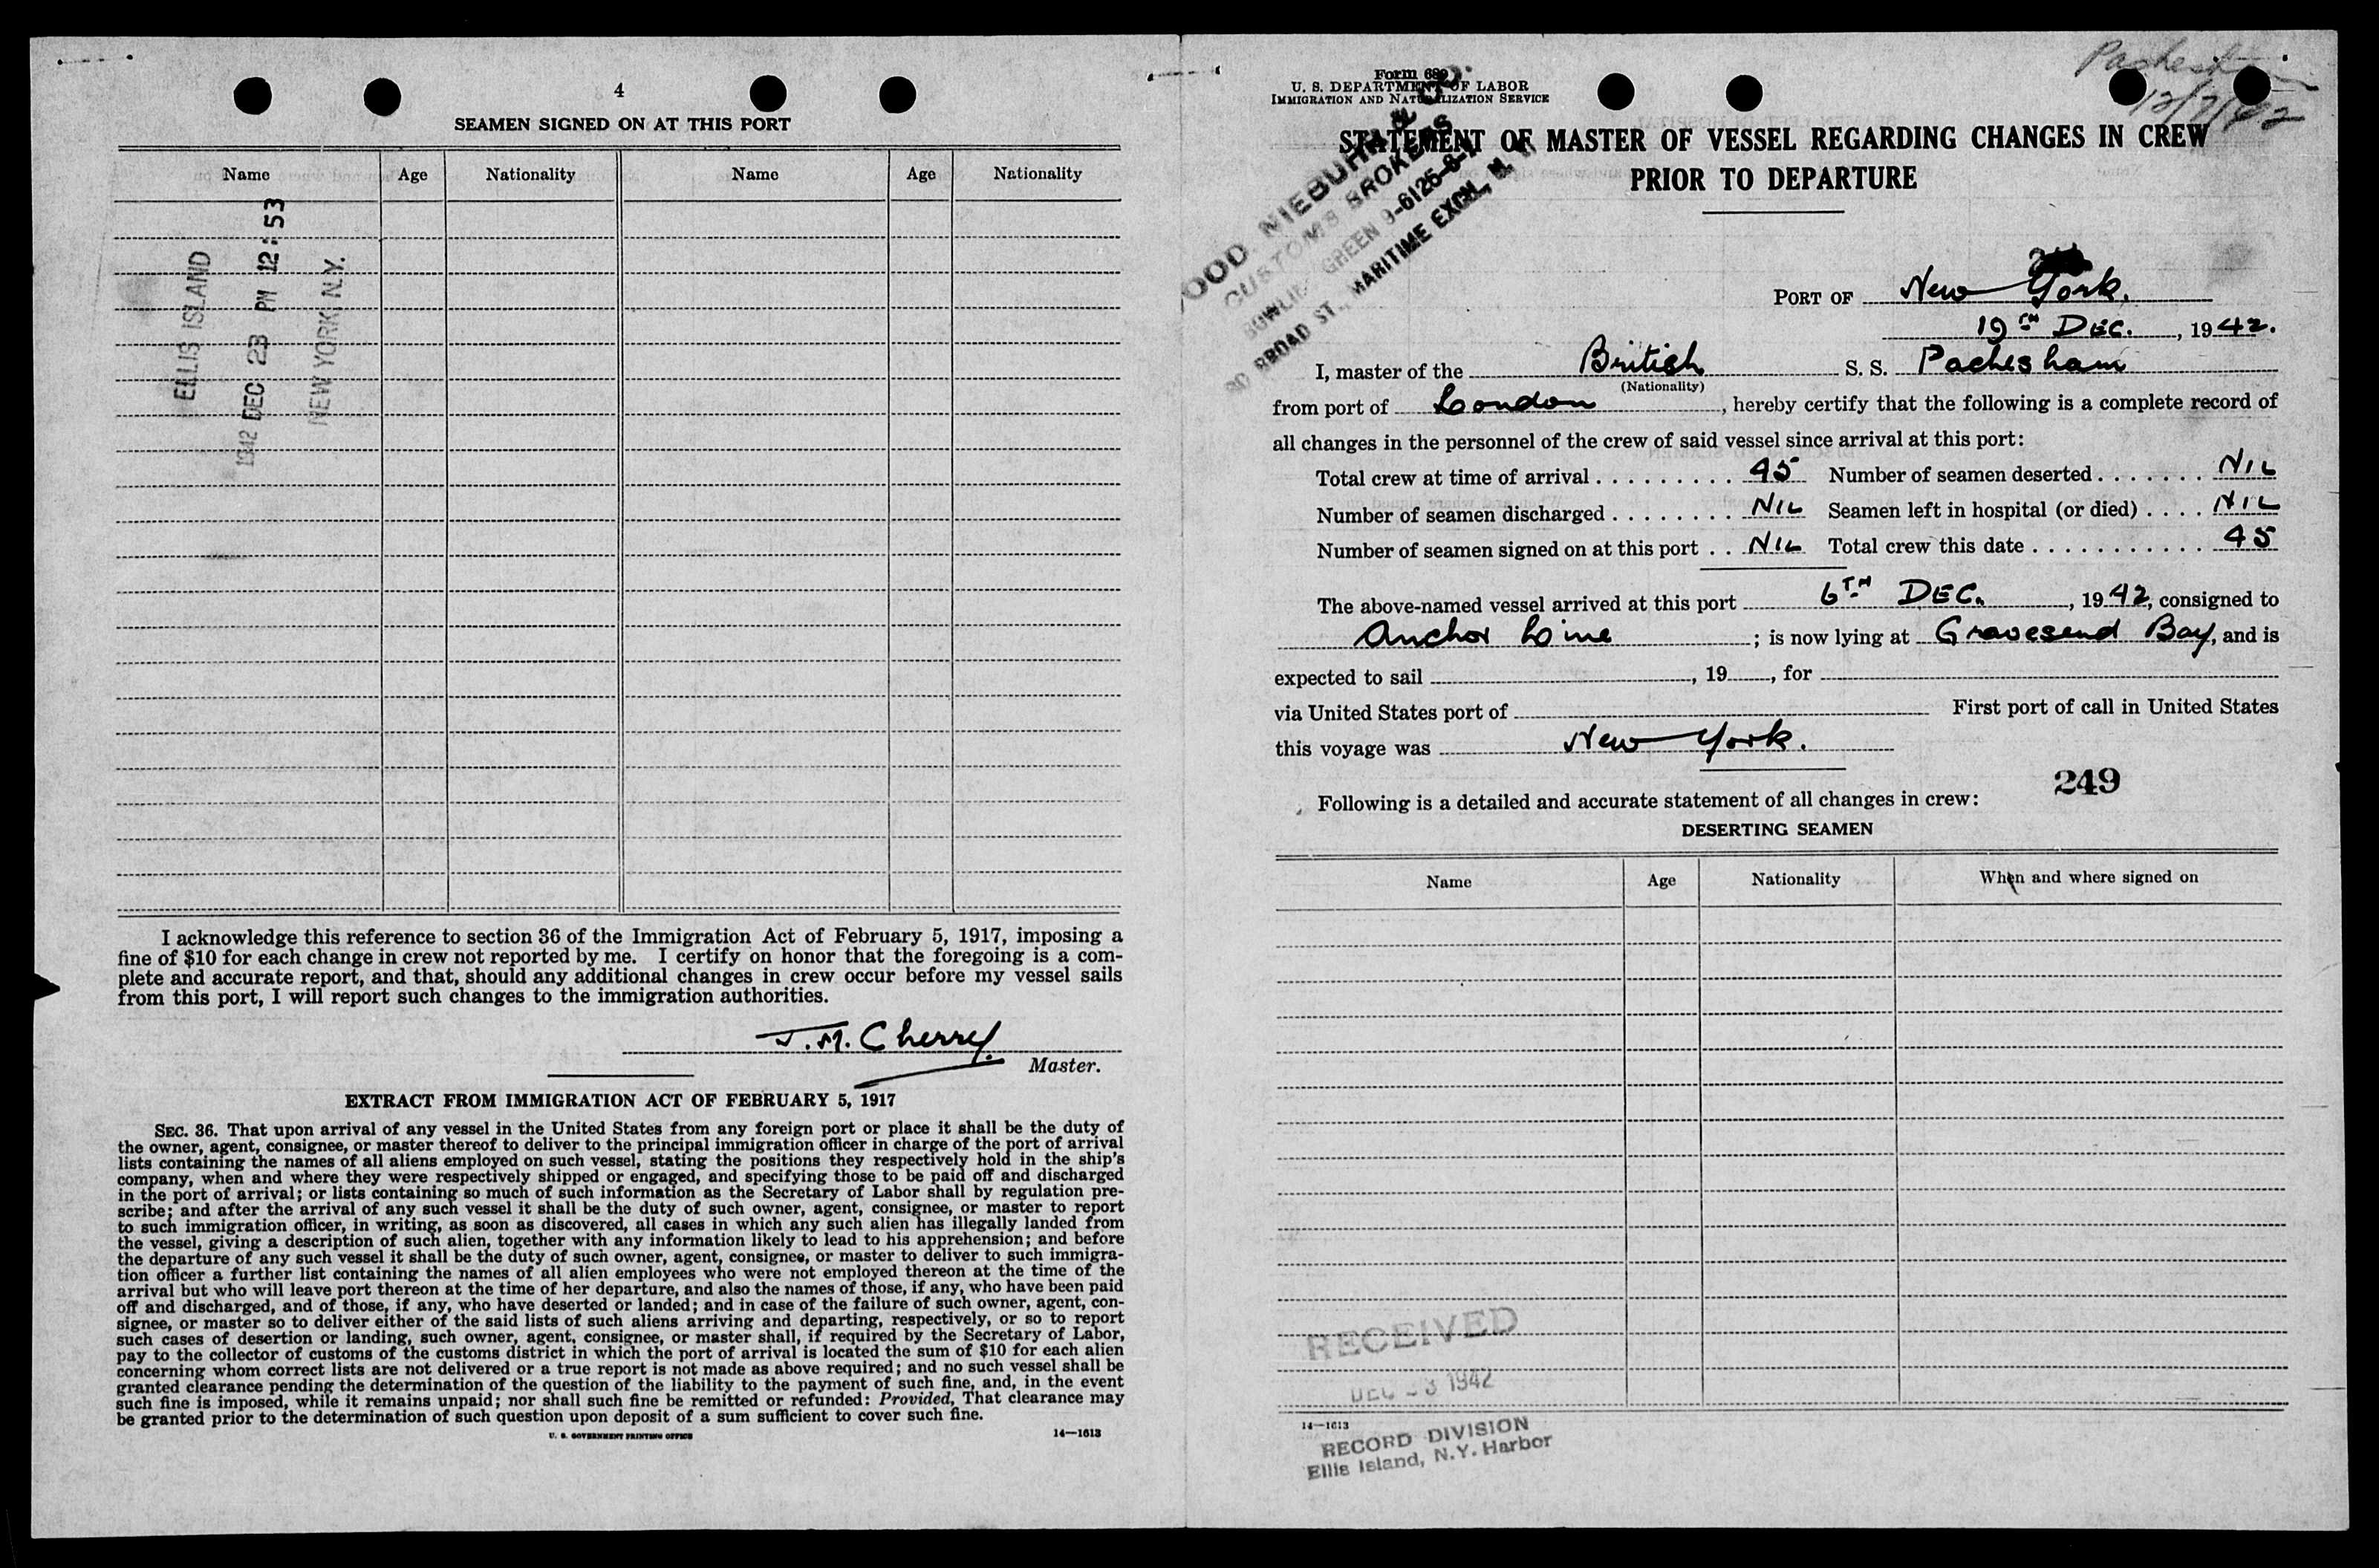 4
SEAMEN SIGNED ON AT THIS PORT
Name Age Nationality Name Age Nationality
ELLIS ISLAND
1942 DEC 23 PM 12:53
NEW YORK N.Y.
I acknowledge this reference to section 36 of the Immigration Act of February 5, 1917, imposing a
fine of $10 for each change in crew not reported by me. I certify on honor that the foregoing is a com-
plete and accurate report, and that, should any additional changes in crew occur before my vessel sails
from this port, I will report such changes to the immigration authorities.
J. M. Cherry.
Master.
EXTRACT FROM IMMIGRATION ACT OF FEBRUARY 5, 1917
SEC. 36. That upon arrival of any vessel in the United States from any foreign port or place it shall be the duty of
the owner, agent, consignee, or master thereof to deliver to the principal immigration officer in charge of the port of arrival
lists containing the names of all aliens employed on such vessel, stating the positions they respectively hold in the ship's
company, when and where they were respectively shipped or engaged, and specifying those to be paid off and discharged
in the port of arrival; or lists containing so much of such information as the Secretary of Labor shall by regulation pre-
scribe; and after the arrival of any such vessel it shall be the duty of such owner, agent, consignee, or master to report
to such immigration officer, in writing, as soon as discovered, all cases in which any such alien has illegally landed from
the vessel, giving a description of such alien, together with any information likely to lead to his apprehension; and before
the departure of any such vessel it shall be the duty of such owner, agent, consignee, or master to deliver to such immigra-
tion officer a further list containing the names of all alien employees who were not employed thereon at the time of the
arrival but who will leave port thereon at the time of her departure, and also the names of those, if any, who have been paid
off and discharged, and of those, if any, who have deserted or landed; and in case of the failure of such owner, agent, con-
signee, or master so to deliver either of the said lists of such aliens arriving and departing, respectively, or so to report
such cases of desertion or landing, such owner, agent, consignee, or master shall, if required by the Secretary of Labor,
pay to the collector of customs of the customs district in which the port of arrival is located the sum of $10 for each alien
concerning whom correct lists are not delivered or a true report is not made as above required; and no such vessel shall be
granted clearance pending the determination of the question of the liability to the payment of such fine, and, in the event
such fine is imposed, while it remains unpaid; nor shall such fine be remitted or refunded: Provided, That clearance may
be granted prior to the determination of such question upon deposit of a sum sufficient to cover such fine.
U. S. GOVERNMENT PRINTING OFFICE 14—1613
Form 689
U. S. DEPARTMENT OF LABOR
IMMIGRATION AND NATURALIZATION SERVICE
12/7/42
NIEBUHR & CO.
CUSTOMS BROKERS
BOWLING GREEN 9-6125-6-7
BROAD ST., MARITIME EXCH, N. Y.
STATEMENT OF MASTER OF VESSEL REGARDING CHANGES IN CREW
PRIOR TO DEPARTURE
PORT OF New York.
19TH DEC., 1942.
I, master of the British S. S. Pachesham
(Nationality)
from port of London, hereby certify that the following is a complete record of
all changes in the personnel of the crew of said vessel since arrival at this port:
Total crew at time of arrival 45 Number of seamen deserted NIL
Number of seamen discharged NIL Seamen left in hospital (or died) NIL
Number of seamen signed on at this port NIL Total crew this date 45
The above-named vessel arrived at this port 6TH DEC., 1942, consigned to
Anchor Line; is now lying at Gravesend Bay, and is
expected to sail , 19 , for
via United States port of First port of call in United States
this voyage was New York.
249
Following is a detailed and accurate statement of all changes in crew:
DESERTING SEAMEN
Name Age Nationality When and where signed on
RECEIVED
DEC 23 1942
14—1613
RECORD DIVISION
Ellis Island, N.Y. Harbor